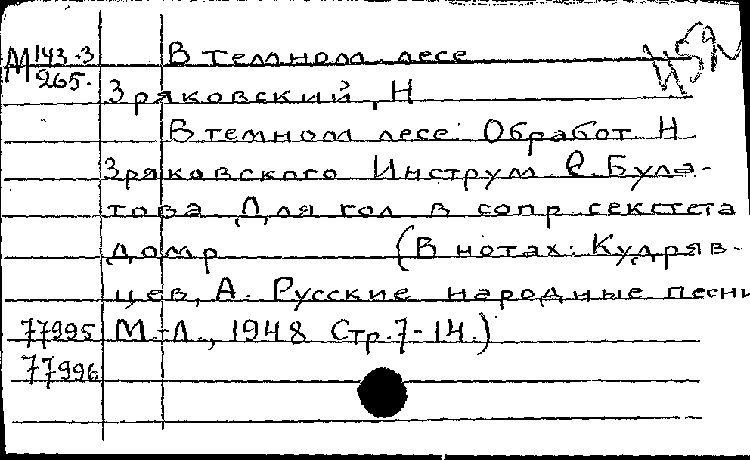 М 143-3
265.
В темном лесе
Зряковский, Н
В темном лесе. Обработ Н
Зряковского Инструм С. Була-
това Для гол в сопр секстета
домр (В нотах: Кудряв-
цев, А. Русские народные песни
М.-Л., 1948 Стр. 7-14.)
77995
77996